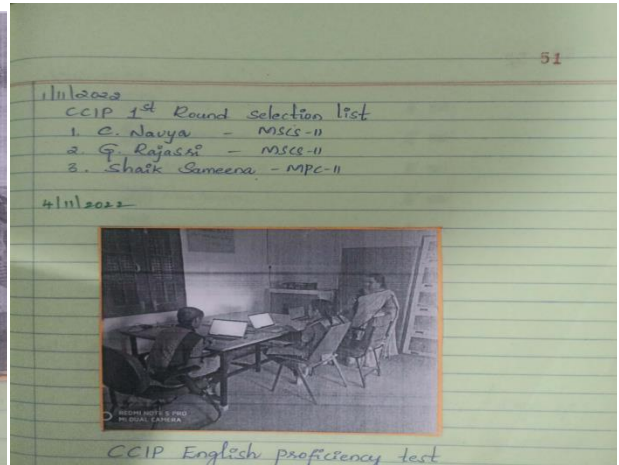 51
1/11/2022
CCIP 1st Round selection list
1. C. Navya - MSCS-II
2. G. Rajassi - MSCS-II
3. Shaik Sameena - MPC-II
4/11/2022
REDMI NOTE 5 PRO
MI DUAL CAMERA
CCIP English proficiency test